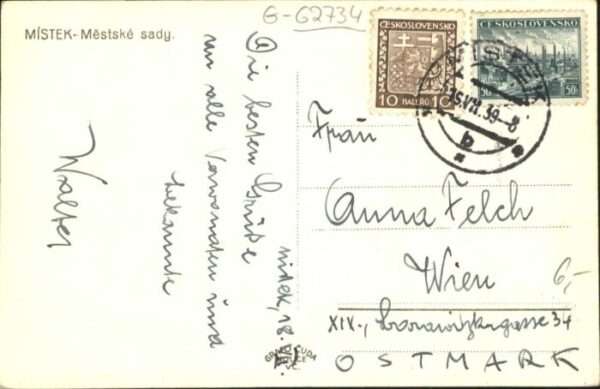 G-G2734
MÍSTEK - Městské sady.
Die besten Grüße
an alle Verwandten und
bekannte
Walter
Mistek, 18.
ČESKOSLOVENSKO
10 HALÉŘŮ 10
ČESKOSLOVENSKO
50 50
MÍSTEK
19.VII.39-8
b
Frau
Anna Felch
Wien
6,-
XIX.,
34
OSTMARK